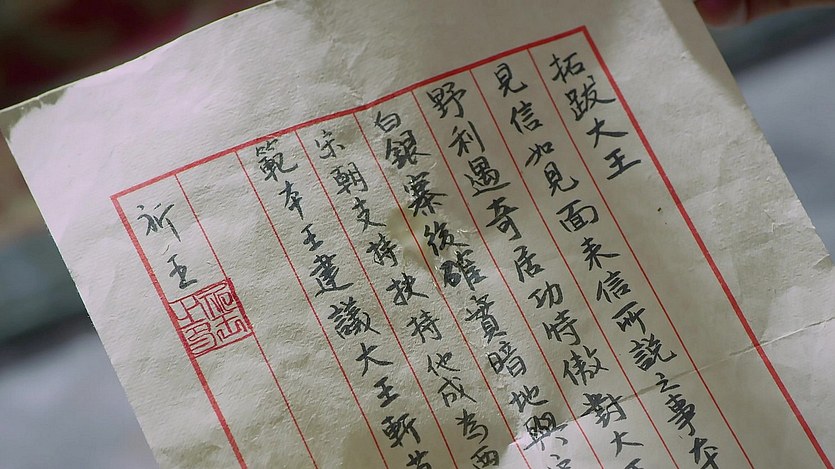 拓跋大王
見信如見面来信所説之事本
野利遇奇居功時傲對大王
白銀寨後確實暗地與宋
宋朝支持扶持他成為西
範本王建議大王斬草
祈王